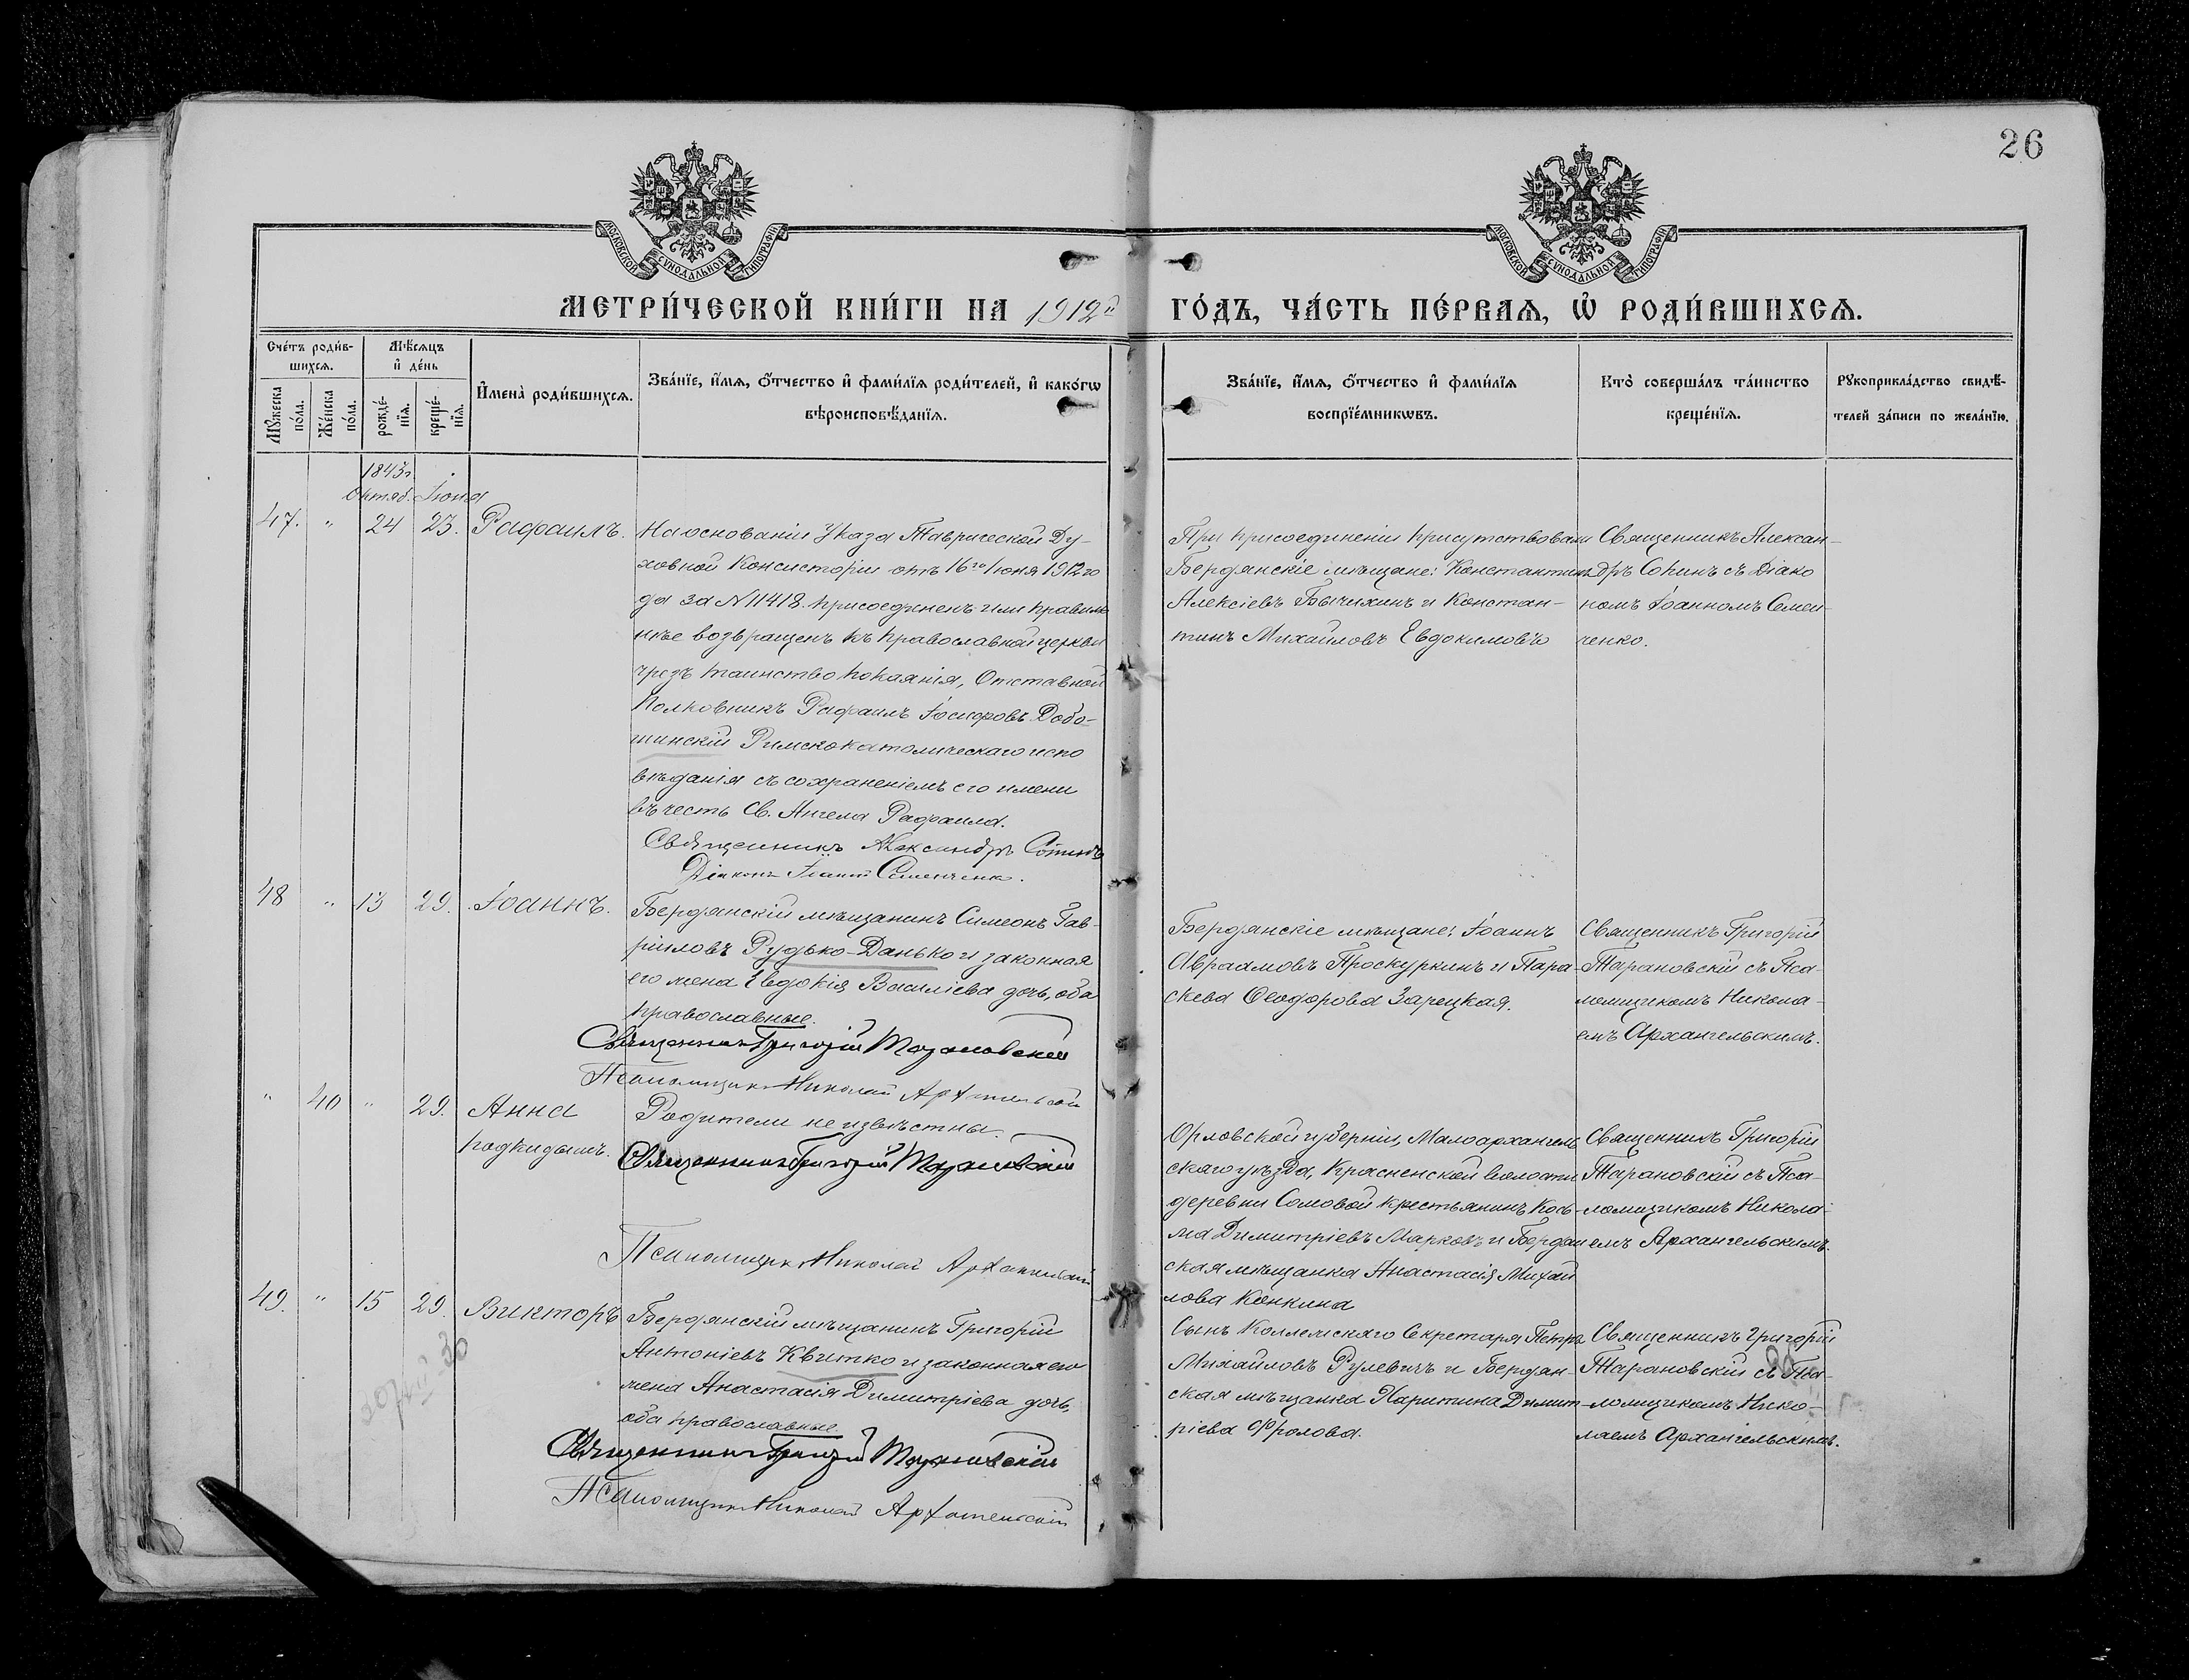 26
МОСКОВСКОЙ СѴНОДАЛЬНОЙ ТИПОГРАФІИ
МОСКОВСКОЙ СѴНОДАЛЬНОЙ ТИПОГРАФІИ
МЕТРИ́ЧЕСКОЙ КНИ́ГИ НА 1912й ГО́ДЪ, ЧА́СТЬ ПЕ́РВАѦ, Ѡ҆ РОДИ́ВШИХСѦ.
Сче́тъ роди́в-
шихсѧ.
Мѣ́сѧцъ
и҆ де́нь
Мꙋ́жеска по́ла.
Же́нска по́ла.
рожде́-
нїѧ.
креще́-
нїѧ.
И҆мена̀ роди́вшихсѧ.
Зва́нїе, и҆́мѧ, ѻ҆́тчество и҆ фами́лїѧ роди́телей, и҆ како́гѡ
вѣроисповѣ́данїѧ.
Зва́нїе, и҆́мѧ, ѻ҆́тчество и҆ фами́лїѧ
воспрїе́мникѡвъ.
Кто̀ соверша́лъ та́инство
креще́нїѧ.
Рꙋкоприкла́дство свидѣ́-
телей за́писи по жела́нїю.
1843г.
Октяб. Іюня
47. " 24 23. Рафаилъ.
На основаніи Указа Таврической Ду-
ховной Консисторіи отъ 16го Іюня 1912 го
да за N 11418. присоединенъ или правиль
нѣе возвращенъ къ православной церкви
чрезъ таинство покаянія, Отставной
Полковникъ Рафаилъ Іосифовъ Добо-
шинскій Римскокатолическаго испо
вѣданія съ сохраненіемъ его имени
въ честь Св. Ангела Рафаила.
Священникъ Александръ Сопинъ
Діаконъ Іоаннъ Семенченко.
При присоединеніи присутствовали
Бердянскіе мѣщане: Константинъ
Алексіевъ Бычихинъ и Констан-
тинъ Михаиловъ Евдокимовъ
Священникъ Алексан-
дръ Сопинъ съ Діако
номъ Іоанномъ Семен-
ченко.
48 " 13 29. Іоаннъ.
Бердянскій мѣщанинъ Симеонъ Гав-
ріиловъ Рудько-Данько и законная
его жена Евдокія Василіева дочь, оба
православные.
Священникъ Григорій Тарановскій
Псаломщикъ Николай Архангельскій
Бердянскіе мѣщане: Іоаннъ
Авраамовъ Проскуркинъ и Пара-
скева Ѳеодорова Зарецкая.
Священникъ Григорій
Тарановскій съ Пса-
ломщикомъ Никола-
емъ Архангельскимъ.
" 40 " 29. Анна
подкидышъ.
Родители не извѣстны.
Священникъ Григорій Тарановскій
Псаломщикъ Николай Архангельскій
Орловской губерніи, Малоархангель
скаго уѣзда, Красненской волости
деревни Сомовой крестьянинъ Кось-
ма Димитріевъ Марковъ и Бердян
ская мѣщанка Анастасія Михаи
лова Конкина
Священникъ Григорій
Тарановскій съ Пса-
ломщикомъ Никола-
емъ Архангельскимъ.
49. " 15 29. Викторъ
Бердянскій мѣщанинъ Григорій
Антоніевъ Квитко и законная его
жена Анастасія Димитріева дочь,
оба православные.
Священникъ Григорій Тарановскій
Псаломщикъ Николай Архангельскій
Сынъ Коллежскаго Секретаря Петръ
Михаиловъ Рулевичъ и Бердян-
ская мѣщанка Харитина Димит-
ріева Фролова.
Священникъ Григорій
Тарановскій съ Пса-
ломщикомъ Нико-
лаемъ Архангельскимъ.